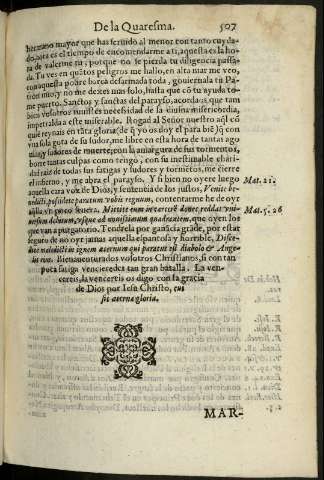 De la Quaresma. 507
hermano mayor que has seruido al menor con tanto cuyda-
do, ea que es tiempo de encomendarme a ti, aquesta es la ho-
ra de valerme tu; porque no se pierda tu diligencia passa-
da. Tu ves en quãtos peligros me hallo, en alta mar me veo,
con aquesta pobre barca desarmada toda, gouiernala tu Pa-
trõn mio, y no me dexes mas solo, hasta que cõ tu ayuda to-
me puerto. Sanctos y sanctas del parayso, acordaos, que tam
bien vosotros tuuistes necessidad de la diuina misericordia,
impetralda a este miserable. Rogad al Señor nuestro aq̃l cõ
quiẽ reynais en tãta gloria (de q̃ yo os doy el para biẽ) q̃ con
vna sola gota de su sudor, me libre en esta hora de tantas ago
nias y sudores de muerte; con la amargura de sus tormentos,
borre tantas culpas como tengo, con su inestimable chari-
dad raiz de todas sus fatigas y sudores y tormẽtos, me cierre
el infierno, y me abra el parayso. Y si bien no oyere luego
aquella cara voz de Dios, y sentencia de los justos, Venite be-
nedicti, possidete paratum vobis regnum, contentarme he de oyr
aq̃lla vn poco seuera. Mittite eum in carcerẽ donec reddat vni-
uersum debitum, vsque ad nouissimum quadrantem, que oyen los
que van a purgatorio. Tendrela por ganãcia grãde, por estar
seguro de no oyr jamas aquella espantosa y horrible, Disce-
dite maledicti in ignem æternum qui paratus est diabolo & Ange-
lis eius. Bienauenturados vosotros Christianos, si con tan
poca fatiga vencieredes tan gran batalla. La ven-
cereis, la vencereis os digo con la gracia
de Dios por Iesu Christo, cui
sit æterna gloria.
Mat. 21.
Mat. 5. 26
MAR-